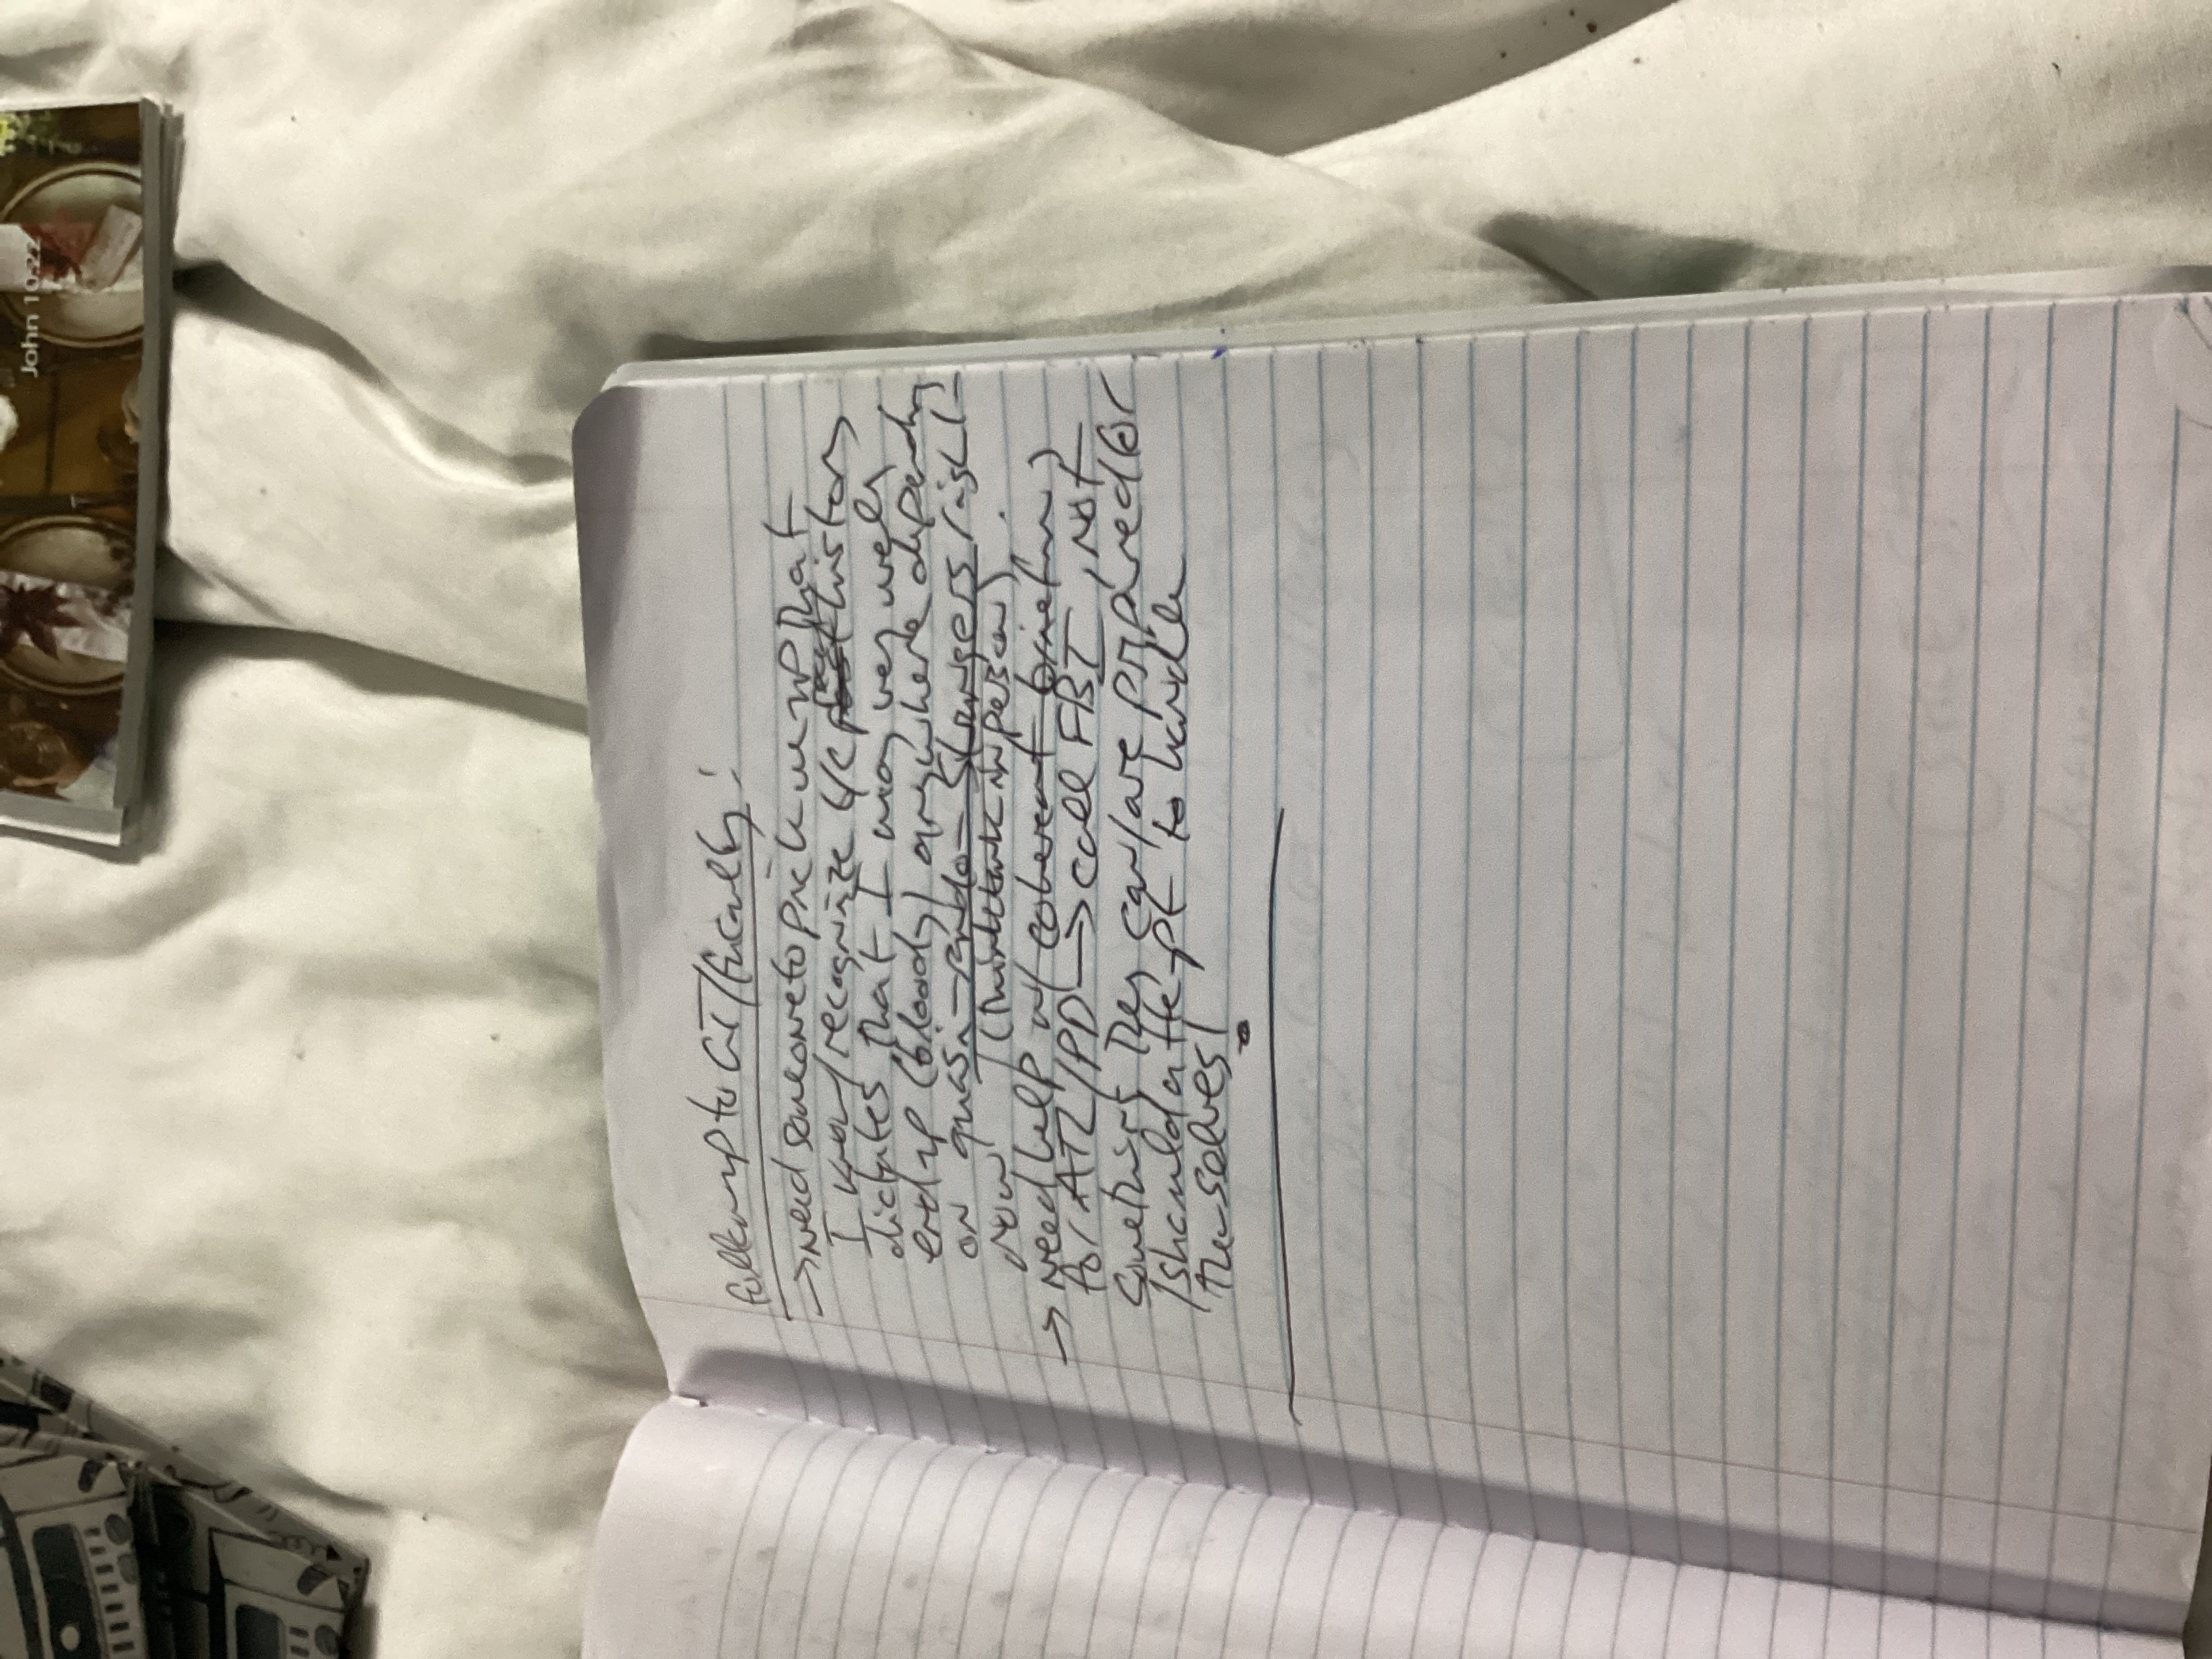 John 10:22
Followup to GT/faculty:
→ need someone to pick me up that
I know/recognize b/c recent history
dictates that I may very well
end up (bloody) anywhere depending
on quasi-rando-strangers right
now (thinktank in person).
→ need help w/ coherent briefing
for ATL/PD → call FBI, not
something they can/are prepared for
/should attempt to handle
themselves!